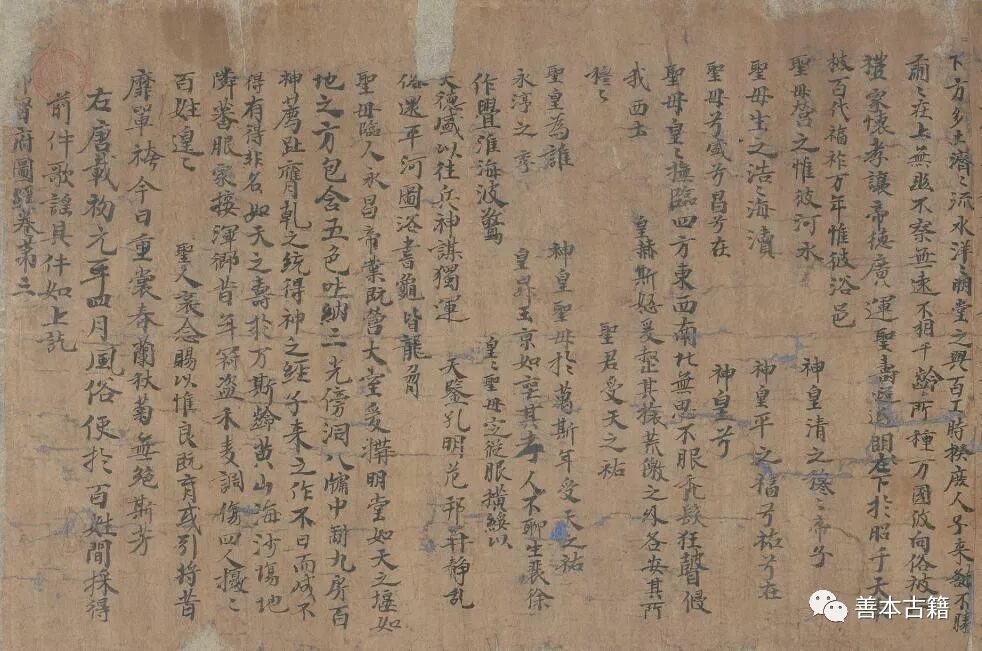 下方多士濟〃流水洋〃明堂之興百工時揆庶人子來鼛不勝
而〃在上無幽不察無遠不相千齡所種万國攸向俗被
禮樂家懷孝讓帝德廣運聖壽遐延明在下於昭于天
枝百代福祚万年惟彼洛邑
聖母營之惟彼河水 神皇清之穆〃帝子
聖母生之浩〃海瀆 神皇平之猗兮祐兮在
聖母兮盛兮昌兮在 神皇兮
聖母皇〃撫臨四方東西南北無思不服禿髮狂瞽侵
我西土 皇赫斯怒爰整其旅荒徼之外各安其所
穆〃 聖君受天之祐
聖皇為誰 神皇聖母於萬斯年受天之祐
永淳之季 皇昇玉京如喪其考人不聊生裴徐
作舋淮海波驚 皇〃聖母定縱服橫綏以
大德威以往兵神謀獨運 天鑒孔明危邦載静亂
俗還平河圖洛書龜皆龍脅
聖母臨人永昌帝業既營大室爰搆明堂如天之堰如
地之方包含五色吐納三光傍洞八牖中制九房百
神薦趾膺乾之統得神之經子來之作不日而成不
得有得非名如天之壽於万斯齡黄山海沙塲地
鄰蕃服家接渾鄉昔年寇盜禾麥調傷四人擾〃
百姓遑〃 聖人哀念賜以惟良既育或引將昔
靡單袴今日重裳春蘭秋菊無絶斯芳
右唐載初元年四月風俗使於百姓間採得
前件歌謡具件如上訖
都督府圖經卷第三
善本古籍